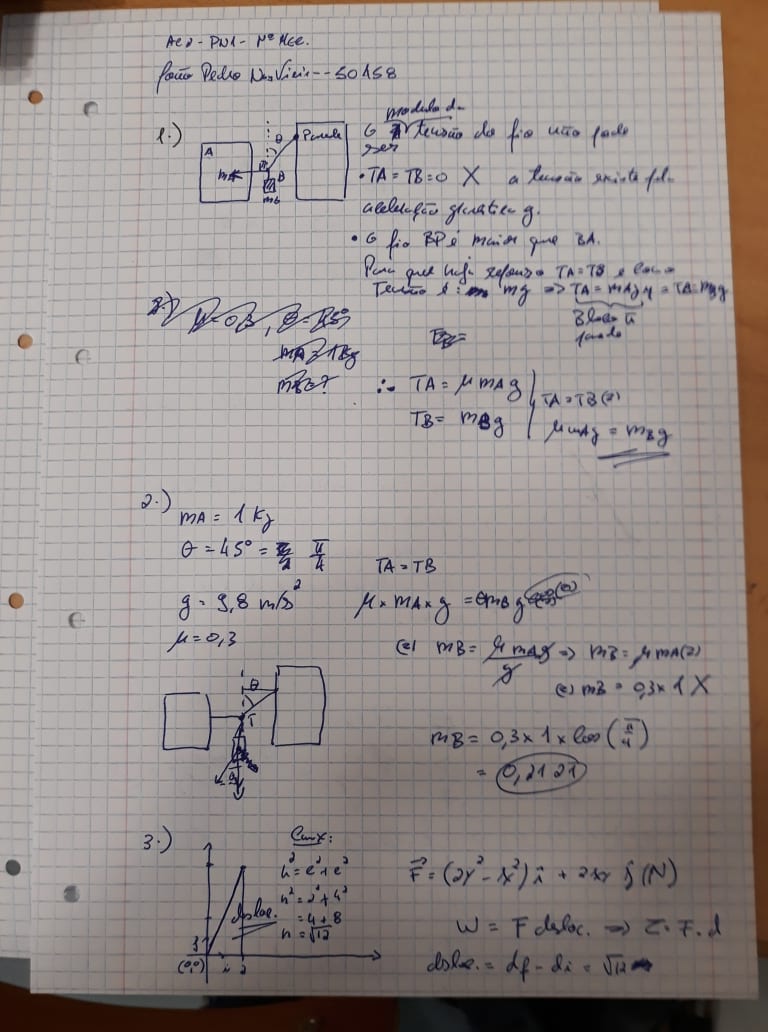 AC2 - PN1 - Nº Mec.
João Pedro - 50158
1.)
A
mA
θ
Parede
B
mB
O módulo da tensão do fio não pode
ser
• TA = TB = 0 X a tensão existe pela
aceleração gravítica g.
• O fio BP é maior que BA.
Para que haja repouso TA = TB e
Tensão é: mg => TA = mAgμ = TB = mBg
Bloco
parado
∴ TA = μ mA g
TB = mB g
TA = TB (=)
μ mAg = mB g
2.)
mA = 1 Kg
θ = 45° = π/4
g = 9,8 m/s²
μ = 0,3
TA = TB
μ × mA × g = mB g
(=) mB = μ mA g / g => mB = μ mA (=)
(=) mB = 0,3 × 1 X
mB = 0,3 × 1 × cos (π/4)
= 0,2121
θ
T
3.)
(0,0)
2
desloc.
Cmx:
h² = c² + c²
h² = 2² + 4²
= 4 + 8
h = √12
F = (2y² - x²) i + 2xy j (N)
W = F desloc. => F . d
desloc. = df - di = √12